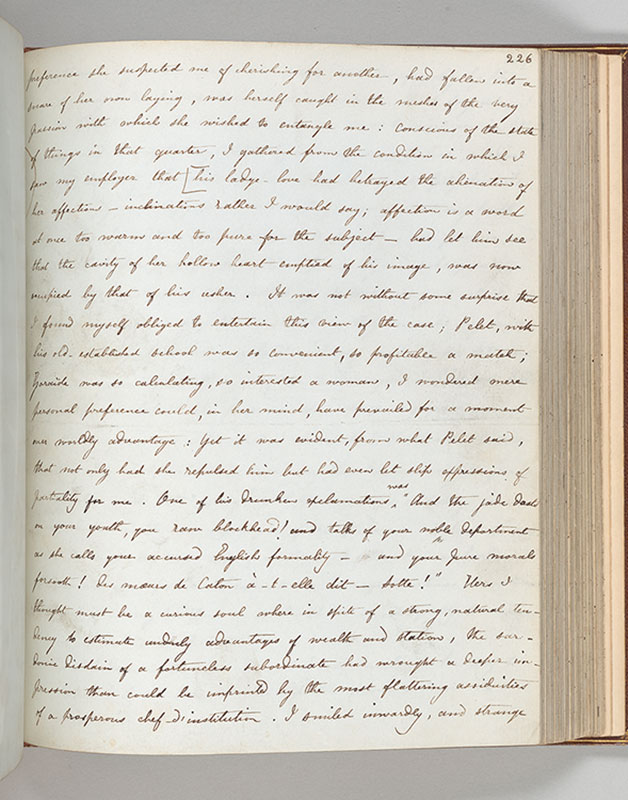 226
preference she suspected me of cherishing for another, had fallen into a
snare of her own laying, was herself caught in the meshes of the very
passion with which she wished to entangle me: conscious of the state
of things in that quarter, I gathered from the condition in which I
saw my employer that [his ladye-love had betrayed the alienation of
her affections — inclinations rather I would say; affection is a word
at once too warm and too pure for the subject — had let him see
that the cavity of her hollow heart emptied of his image, was now
occupied by that of his usher. It was not without some surprise that
I found myself obliged to entertain this view of the case; Pelet, with
his old-established school was so convenient, so profitable a match;
Zoraïde was so calculating, so interested a woman, I wondered mere
personal preference could, in her mind, have prevailed for a moment
over worldly advantage: yet it was evident, from what Pelet said,
that not only had she repulsed him but had even let slip expressions of
partiality for me. One of his drunken exclamations was, "And the jade doats
on your youth, you raw blockhead! and talks of your noble deportment
as she calls your accursed English formality — and your pure morals
forsooth! Des mœurs de Caton a-t-elle dit — Sotte!" Hers I
thought must be a curious soul where in spite of a strong, natural ten-
dency to estimate unduly advantages of wealth and station, the sar-
donic disdain of a fortuneless subordinate had wrought a deeper im-
pression than could be imprinted by the most flattering assiduities
of a prosperous chef-d'institution. I smiled inwardly, and strange